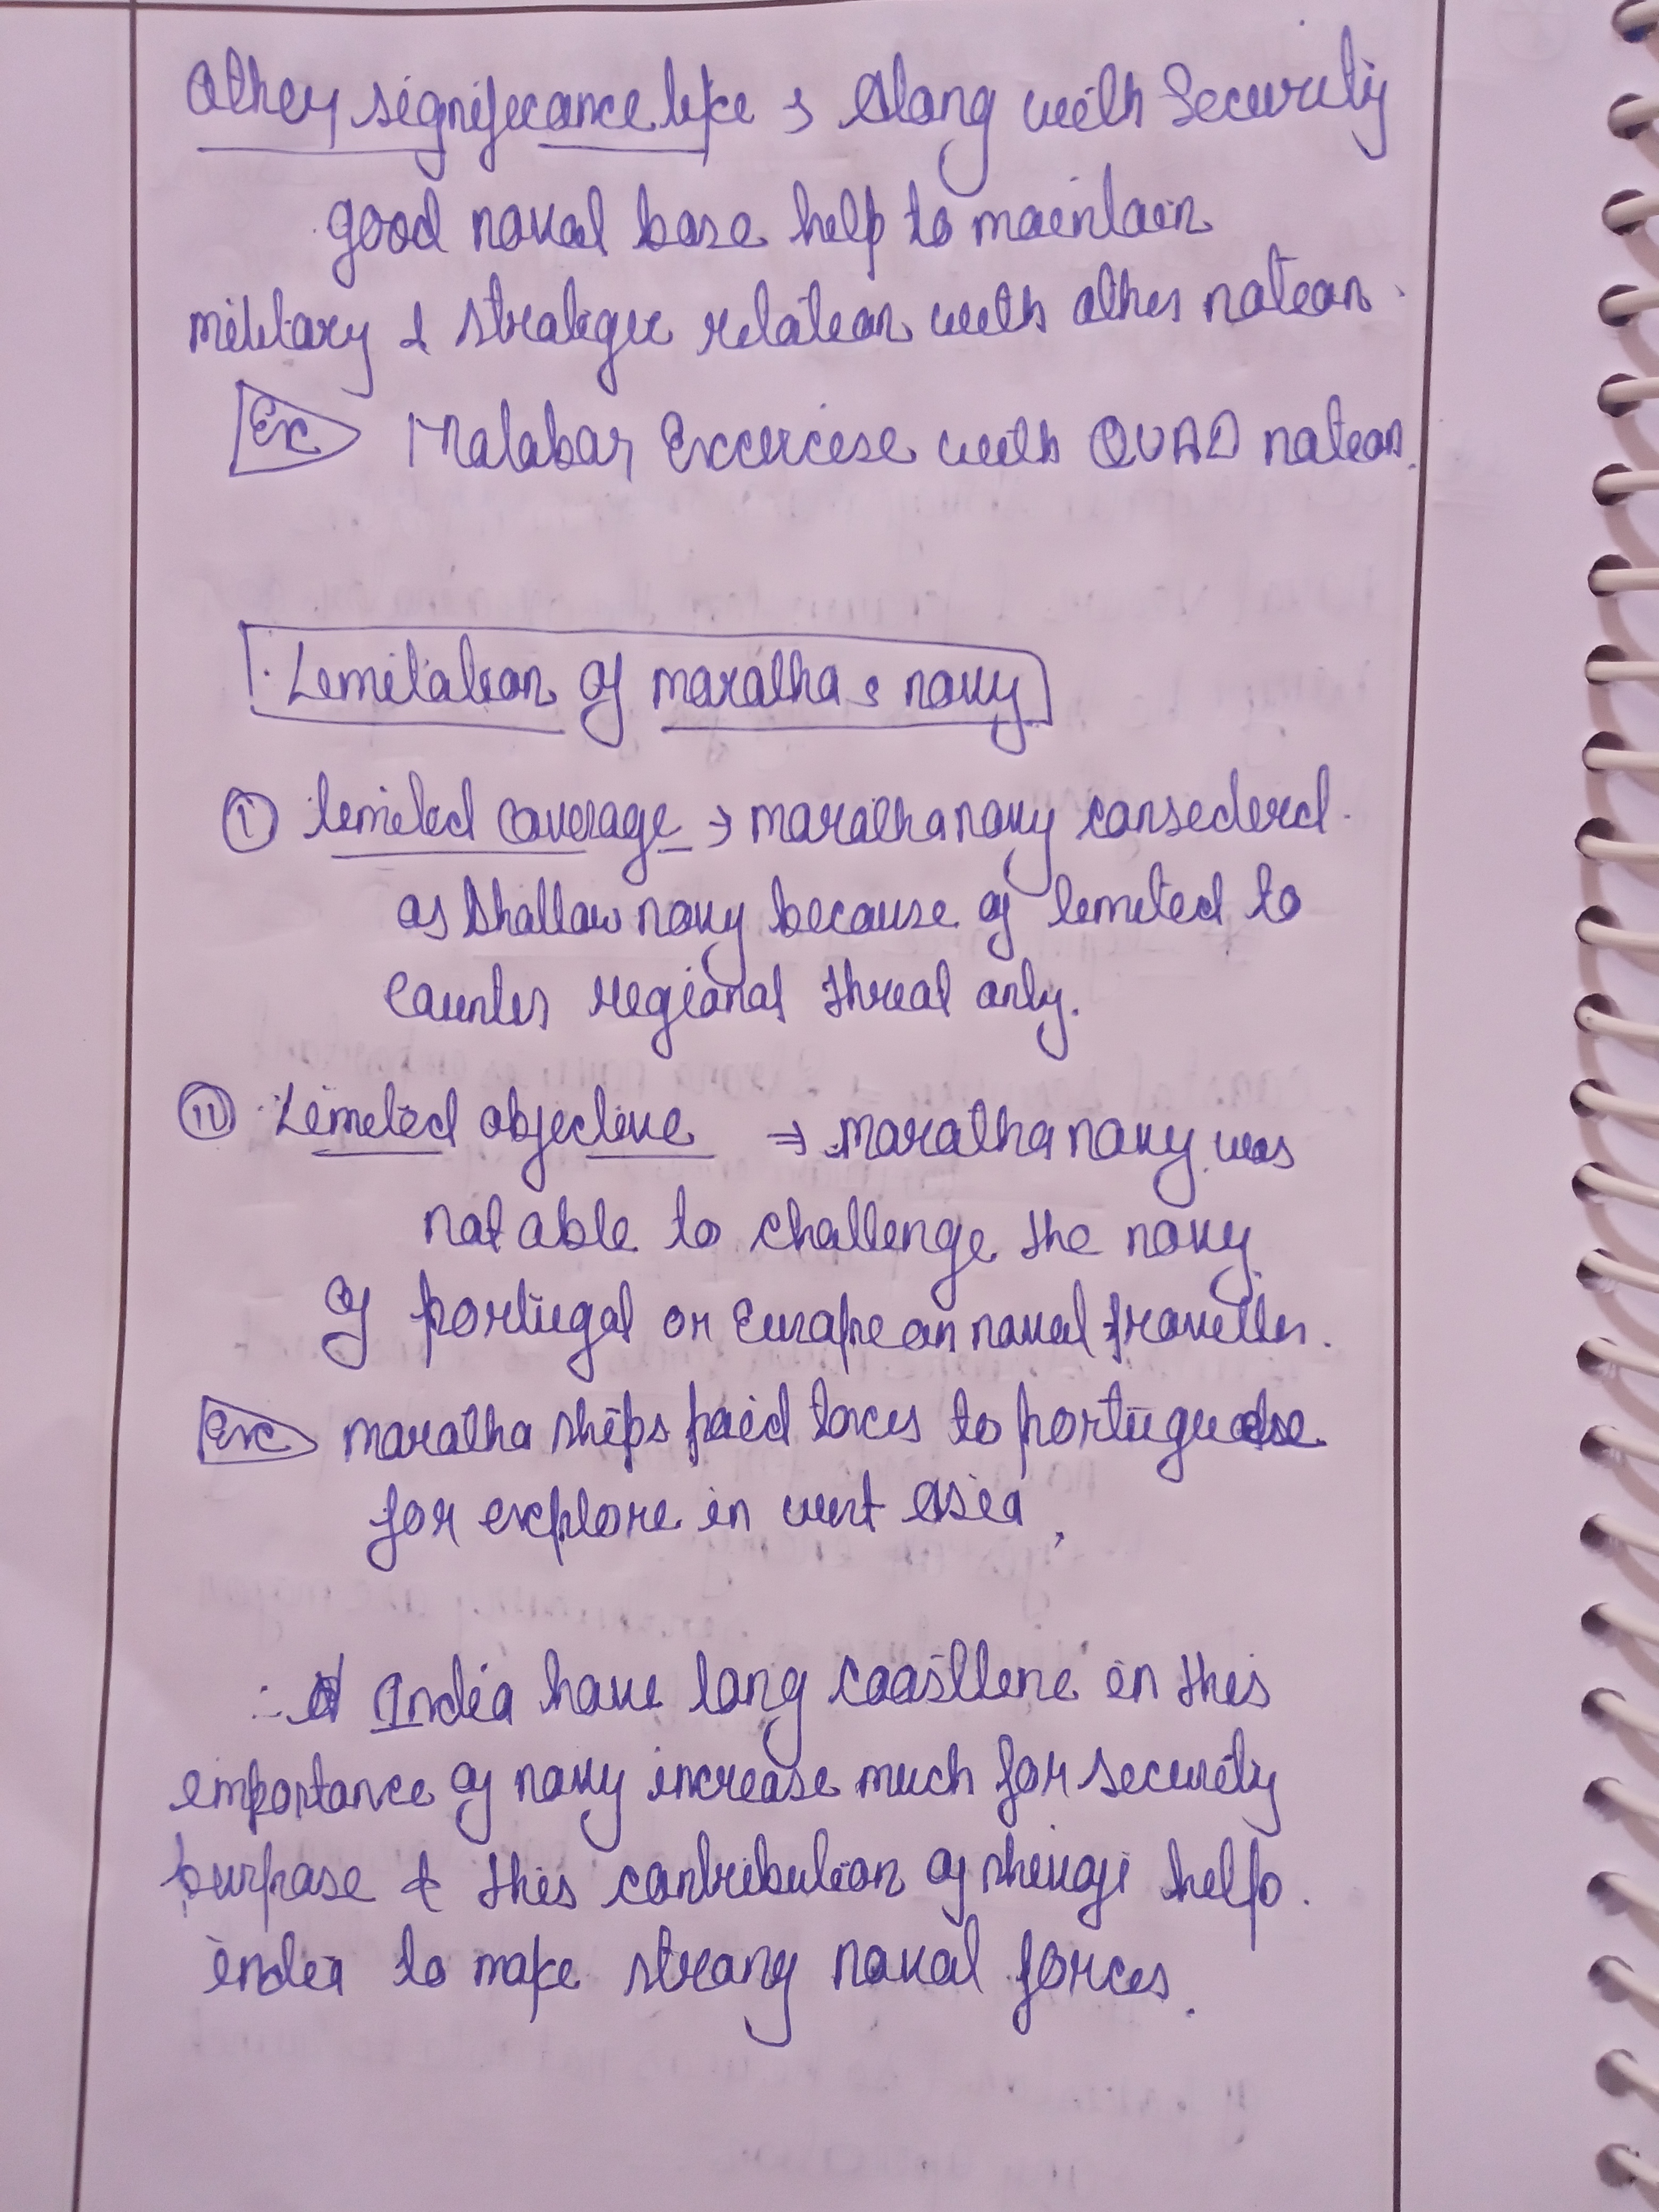 Other significance like → Along with Security
good naval base help to maintain
military & strategic relation with other nation.
Ex Malabar Excercise with QUAD nation.
Limitation of maratha's navy
(I) limited coverage → maratha navy considered
as shallow navy because of limited to
counter regional threat only.
(II) Limited objective ⇒ maratha navy was
not able to challenge the navy
of portugal or European naval traveller.
Ex maratha ships paid taxes to portuguese
for explore in west Asia.
∴ India have long coastline in this
importance of navy increase much for security
purpose & this contribution of shivaji help
india to make strong naval forces.